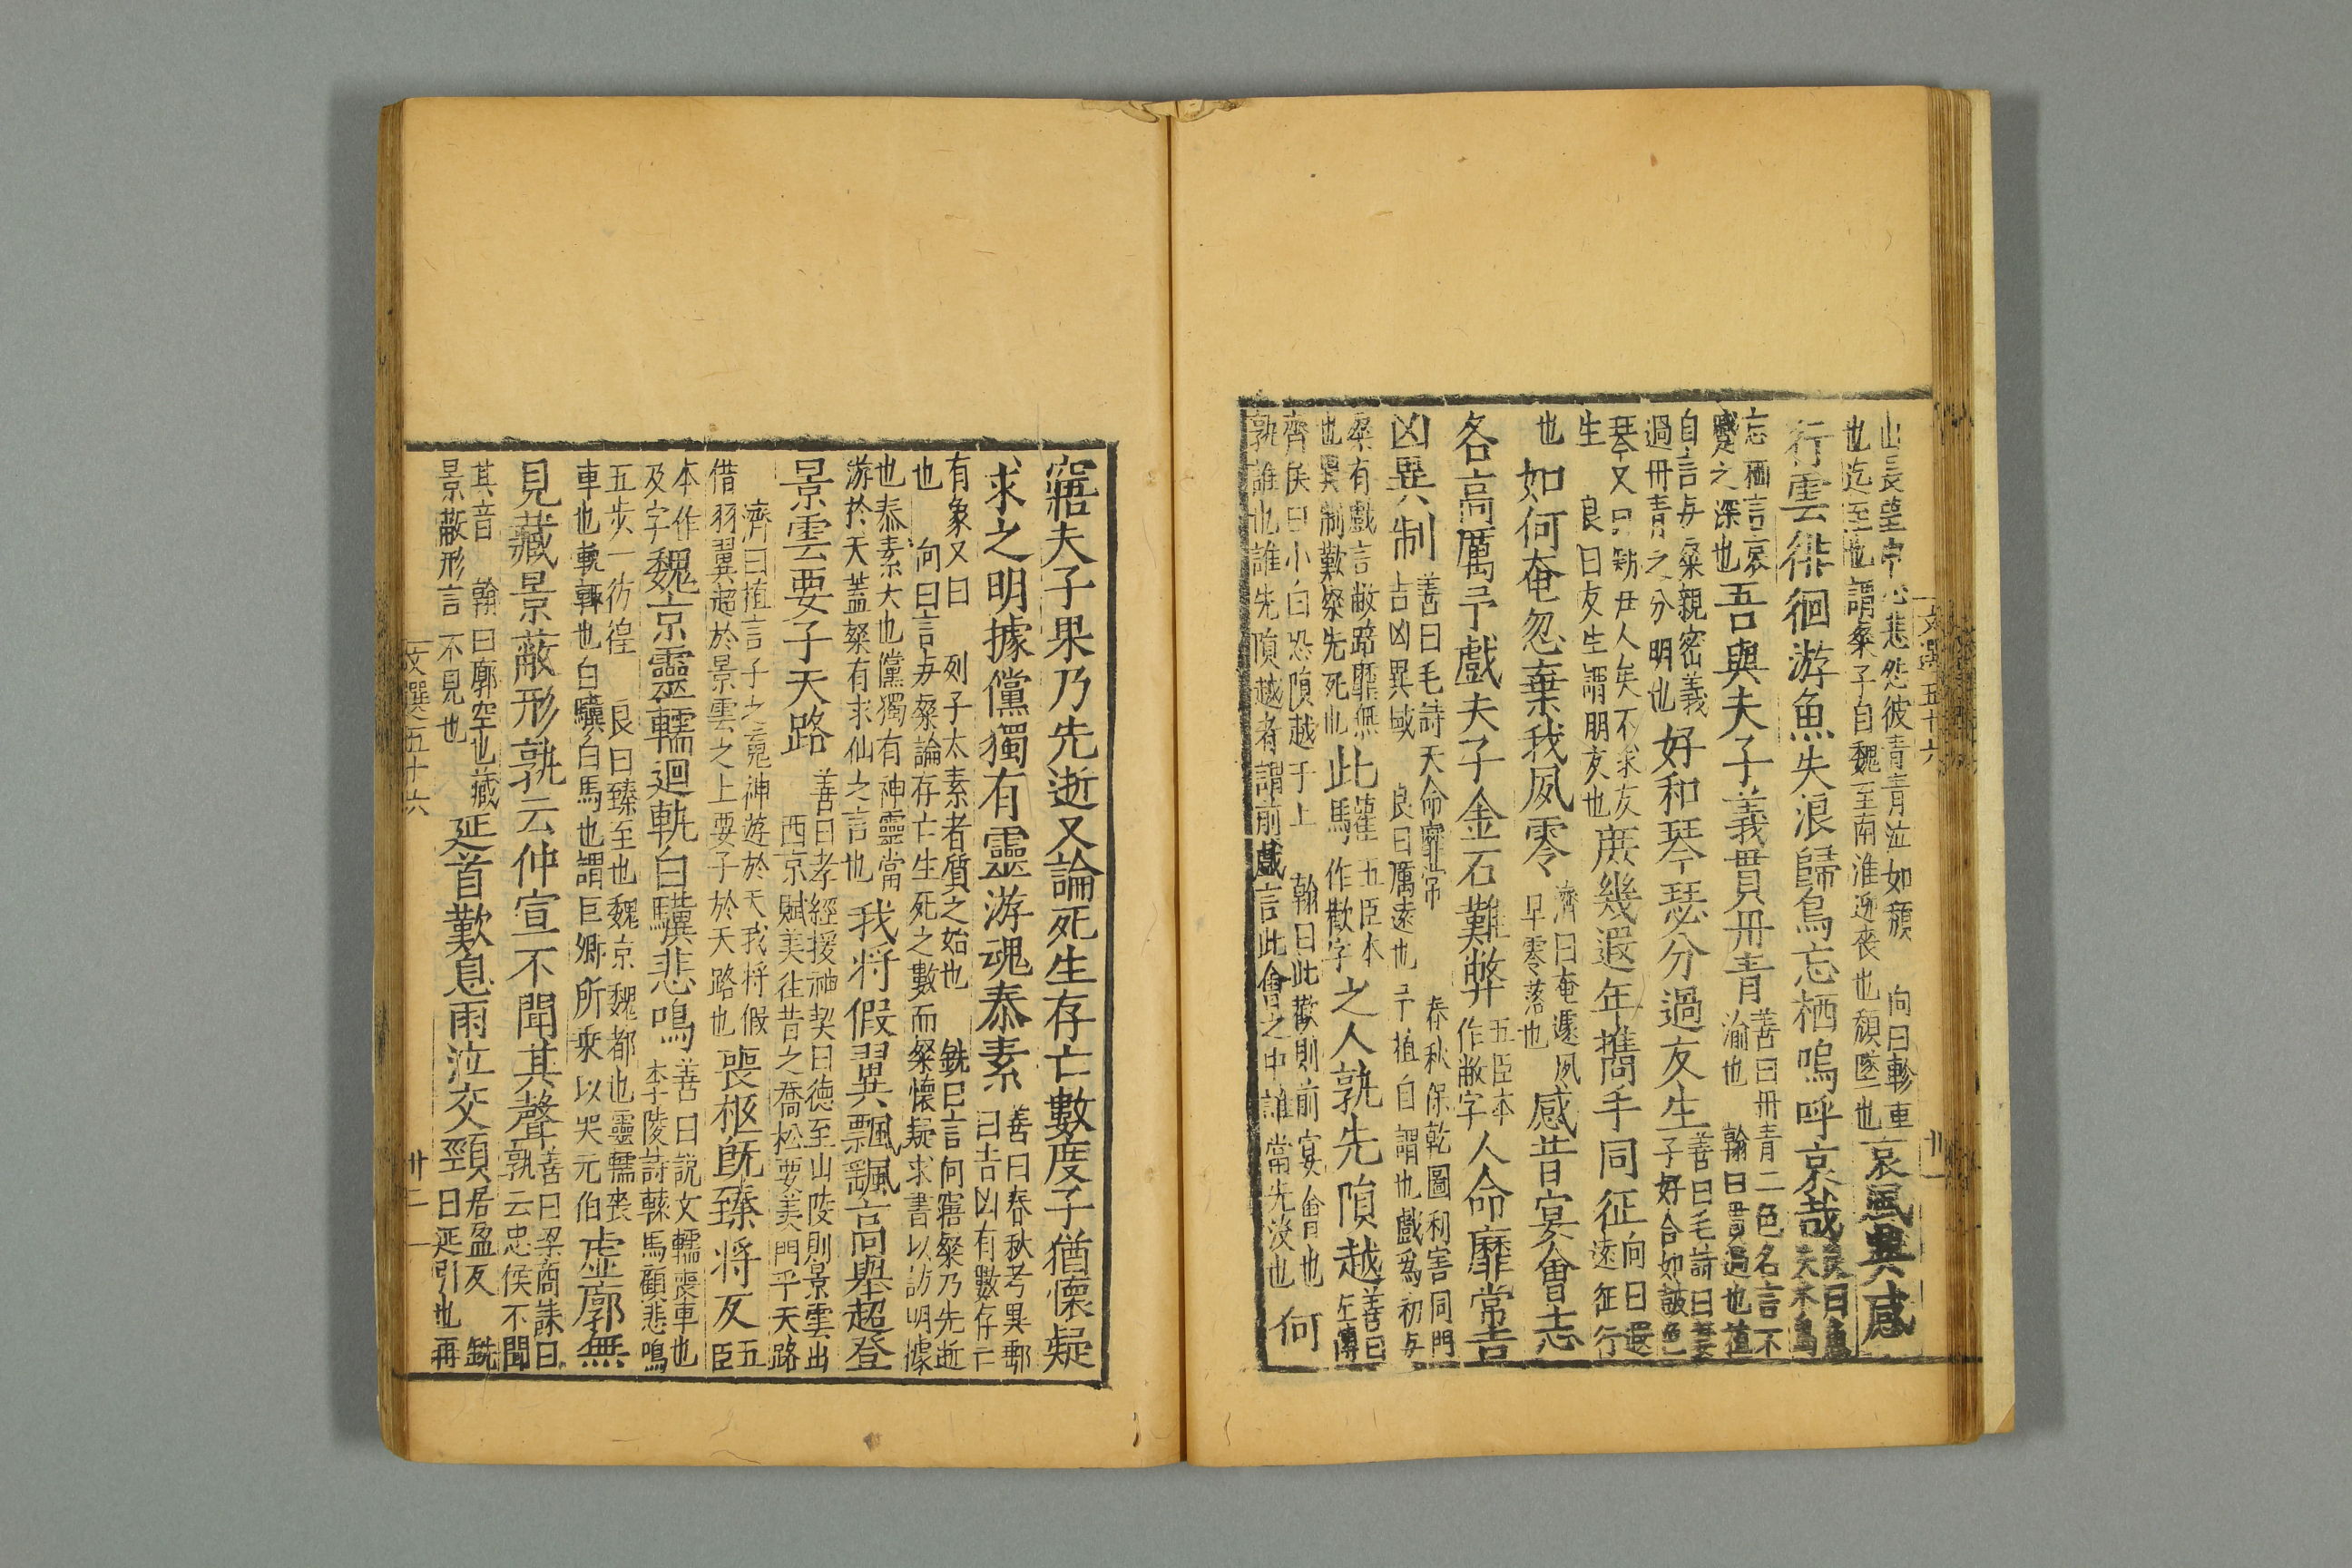 文選五十六 卅一
山長望中心悲然彼青青泣如頹 向曰軫車也迄至也謂粲子自魏至南淮迎喪也頹墜也哀風興感
行雲徘徊游魚失浪歸鳥忘栖嗚呼哀哉
忘栖言哀感之深也吾與夫子義貫丹青善曰丹青二色名言不渝也 翰曰貫過也植
自言与粲親密義過丹青之分明也好和琴瑟分過友生善曰毛詩曰妻子好合如鼓瑟
琴又曰矧伊人矣不求友生 良曰友生謂朋友也庶幾遐年攜手同征向曰遐遠征行
也如何奄忽棄我夙零濟曰奄遽夙早零落也感昔宴會志
各高厲予戲夫子金石難弊五臣本作敝字人命靡常吉
凶異制善曰毛詩天命靡常 春秋保乾圖利害同門吉凶異域 良曰厲遠也予植自謂也戲爲初与
粲有戲言敝靡無也異制歎粲先死也此驩五臣本作歡字之人孰先隕越善曰左傳
齊侯曰小白恐隕越于上 翰曰此歡則前宴會也孰誰也誰先隕越者謂前戲言此會之中誰當先沒也何
寤夫子果乃先逝又論死生存亡數度子猶懷疑
求之明據儻獨有靈游魂泰素善曰春秋考異郵曰吉凶有數存亡
有象又曰 列子太素者質之始也 銑曰言何寤粲乃先逝也 向曰言与粲論存亡生死之數而粲懷疑求書以訪明據
也泰素大也儻獨有神靈當游於天蓋粲有求仙之言也我將假翼飄颻高舉超登
景雲要子天路善曰孝經援神契曰德至山陵則景雲出西京賦美往昔之喬松要羡門乎天路
濟曰植言子之䰟神遊於天我將假借羽翼超於景雲之上要子於天路也喪柩既臻將反五臣
本作及字魏京靈轜迴軌白驥悲鳴善曰說文轜喪車也李陵詩轅馬顧悲鳴
五步一彷徨 良曰臻至也魏京魏都也靈轜喪車也軌轉也白驥白馬也謂巨卿所乘以哭元伯虛廓無
見藏景蔽形孰云仲宣不聞其聲善曰梁商誄曰孰云忠侯不聞
其音 翰曰廓空也藏景蔽形言不見也延首歎息雨泣交頸居盈反 銑曰延引也再
文選五十六 卅二